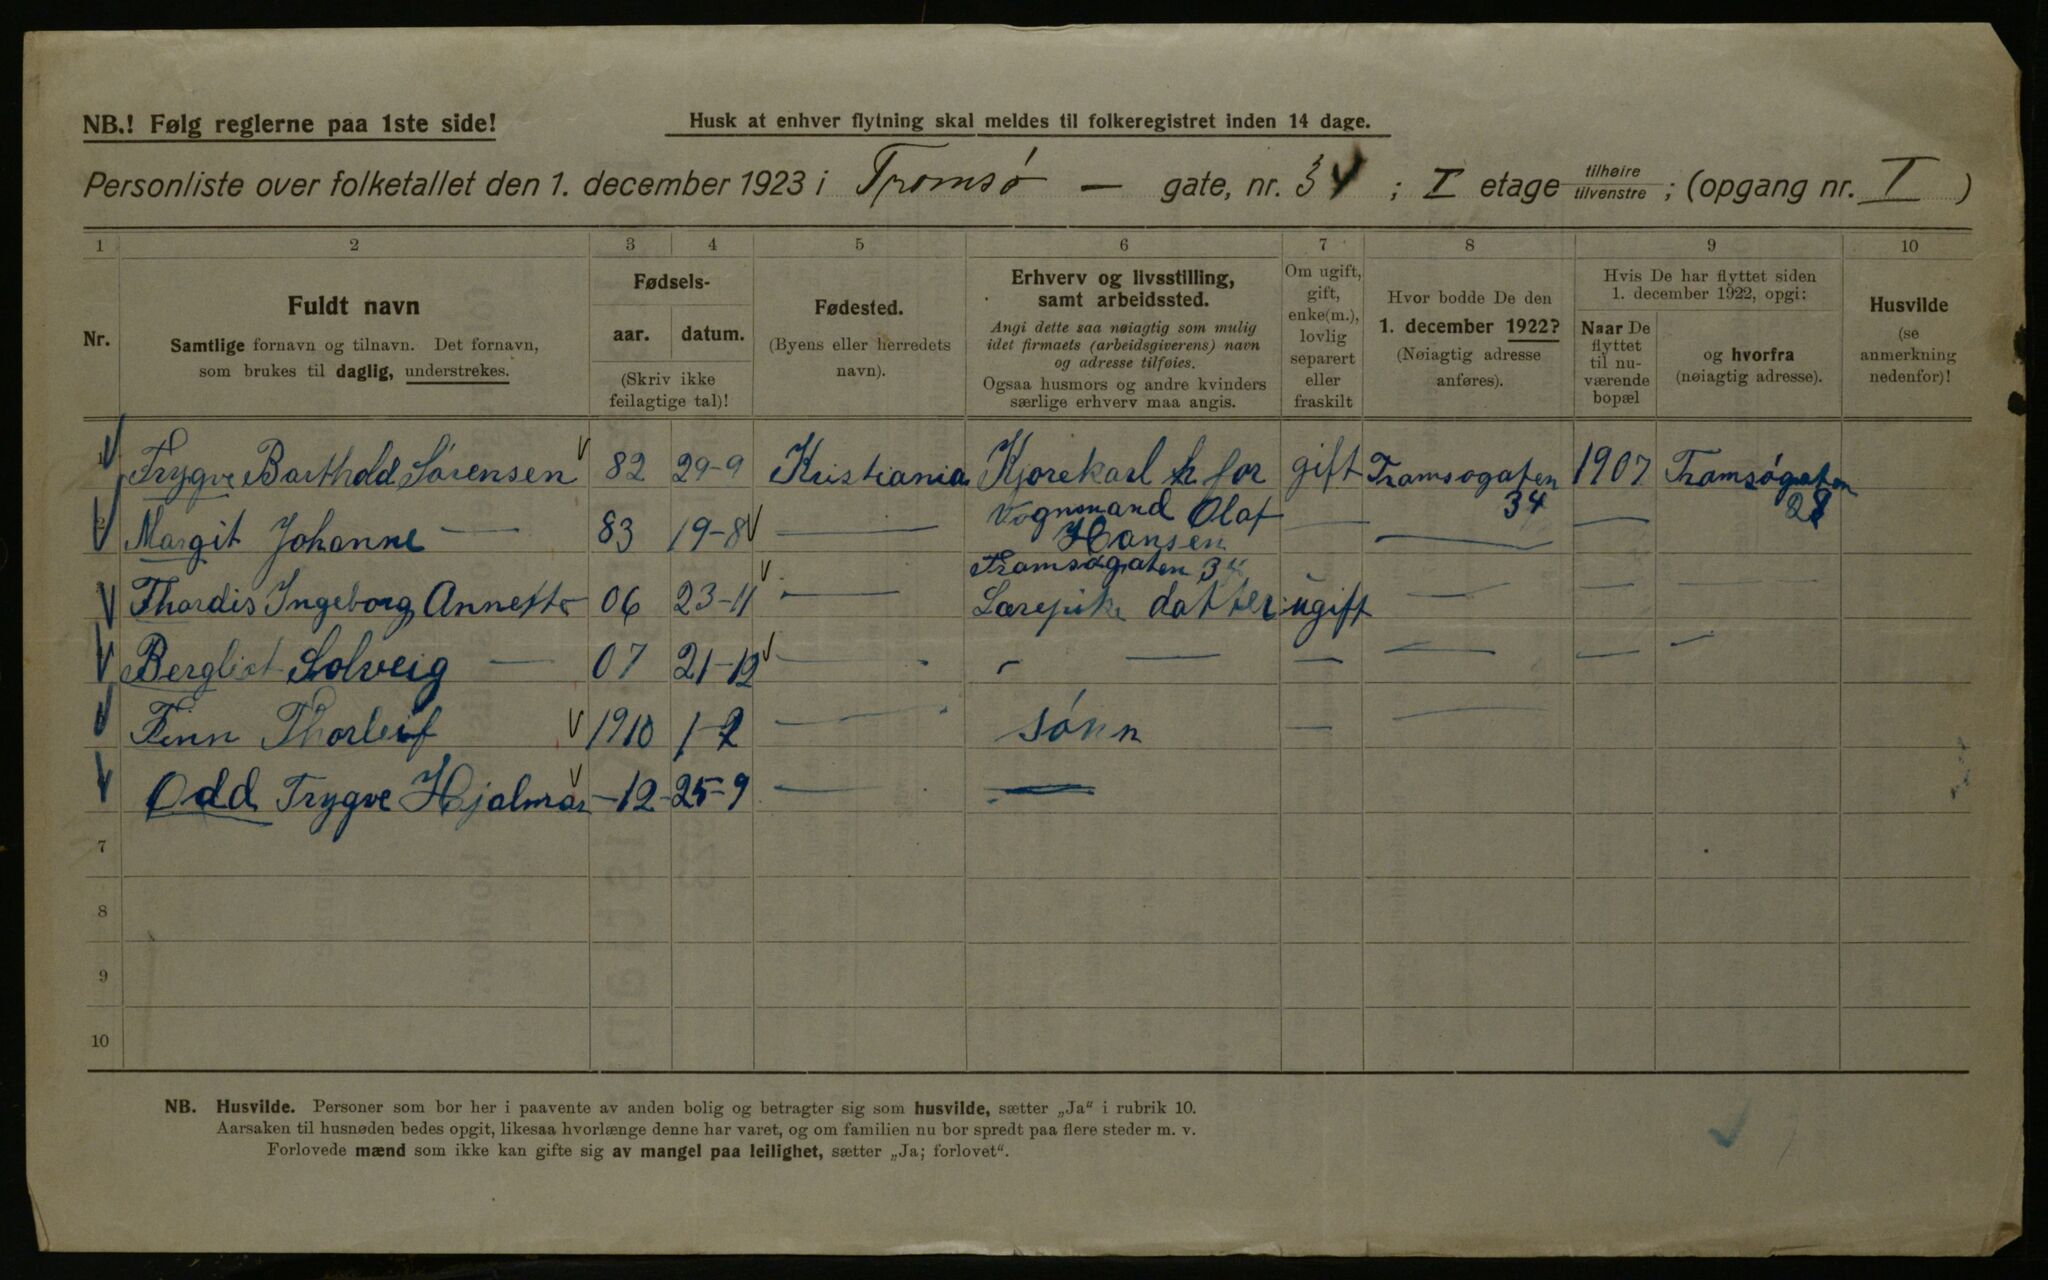 NB.! Følg reglerne paa 1ste side!
Husk at enhver flytning skal meldes til folkeregistret inden 14 dage.
Personliste over folketallet den 1. december 1923 i Tromsø — gate, nr. 34 ; I etage tilhøire tilvenstre ; (opgang nr. I )
1 2 3 4 5 6 7 8 9 10
Nr.
Fuldt navn
Samtlige fornavn og tilnavn. Det fornavn,
som brukes til daglig, understrekes.
Fødsels-
aar. datum.
(Skriv ikke
feilagtige tal)!
Fødested.
(Byens eller herredets
navn).
Erhverv og livsstilling,
samt arbeidssted.
Angi dette saa nøiagtig som mulig
idet firmaets (arbeidsgiverens) navn
og adresse tilføies.
Ogsaa husmors og andre kvinders
særlige erhverv maa angis.
Om ugift,
gift,
enke(m.),
lovlig
separert
eller
fraskilt
Hvor bodde De den
1. december 1922?
(Nøiagtig adresse
anføres).
Hvis De har flyttet siden
1. december 1922, opgi:
Naar De
flyttet
til nu-
værende
bopæl
og hvorfra
(nøiagtig adresse).
Husvilde
(se
anmerkning
nedenfor)!
Trygve Barthold Sørensen 82 29-9 Kristiania Kjørekarl for gift Tromsøgaten 1907 Tromsøgaten
Vognmand Olaf 34 28
Margit Johanne — 83 19-8 — Hansen — — —
Tromsøgaten 34
Thordis Ingeborg Annette 06 23-11 — Lærepike datter ugift — — —
Bergliot Solveig — 07 21-12 — — — — — —
Finn Thorleif 1910 1-2 — sønn — —
Odd Trygve Hjalmar -12- 25-9 — —
7
8
9
10
NB. Husvilde. Personer som bor her i paavente av anden bolig og betragter sig som husvilde, sætter „Ja“ i rubrik 10.
Aarsaken til husnøden bedes opgit, likesaa hvorlænge denne har varet, og om familien nu bor spredt paa flere steder m. v.
Forlovede mænd som ikke kan gifte sig av mangel paa leilighet, sætter „Ja; forlovet“.